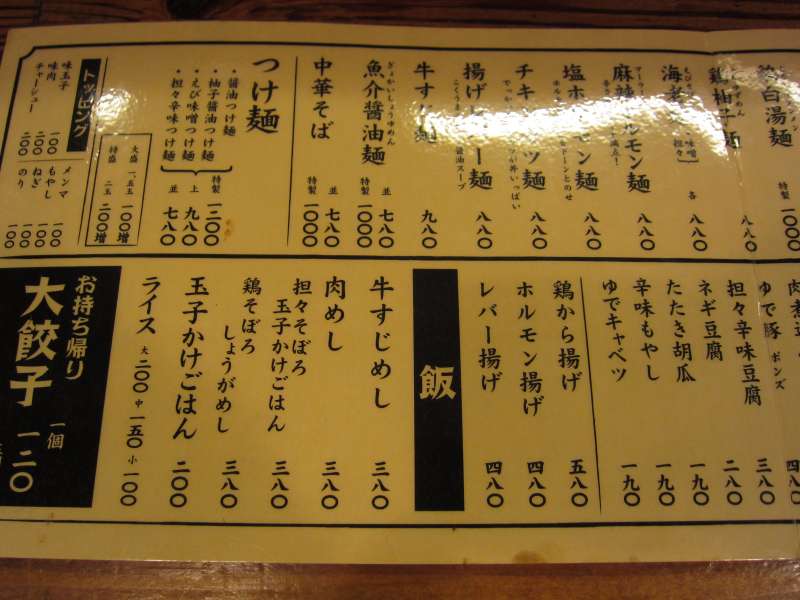 白湯麺
特製 一〇〇〇
鶏柚子麺
八八〇
海老
味噌
担々
各 八八〇
麻辣ホルモン麺
八八〇
塩ホルモン麺
八八〇
チキンカツ麺
八八〇
揚げレバー麺
醤油スープ
八八〇
牛すじ麺
九八〇
ぎょかいしょうゆめん
魚介醤油麺
並 七八〇
特製 一〇〇〇
中華そば
並 七八〇
特製 一〇〇〇
つけ麺
・醤油つけ麺
・柚子醤油つけ麺
・えび味噌つけ麺
・担々辛味つけ麺
特製 一二〇〇
上 九八〇
並 七八〇
大盛 一、五玉 一〇〇増
特盛 二玉 二〇〇増
トッピング
味玉子 一〇〇
味肉 二〇〇
チャーシュー 二〇〇
メンマ 一〇〇
もやし 一〇〇
ねぎ 一〇〇
のり 一〇〇
肉煮込
四八〇
ゆで豚 ポンズ 三八〇
担々辛味豆腐 二八〇
ネギ豆腐 一九〇
たたき胡瓜 一九〇
辛味もやし 一九〇
ゆでキャベツ 一九〇
鶏から揚げ 五八〇
ホルモン揚げ 四八〇
レバー揚げ 四八〇
飯
牛すじめし 三八〇
肉めし 三八〇
担々そぼろ
玉子かけごはん 三八〇
鶏そぼろ
しょうがめし 三八〇
玉子かけごはん 二〇〇
ライス 大 二〇〇 中 一五〇 小 一〇〇
お持ち帰り
大餃子 一個 一二〇